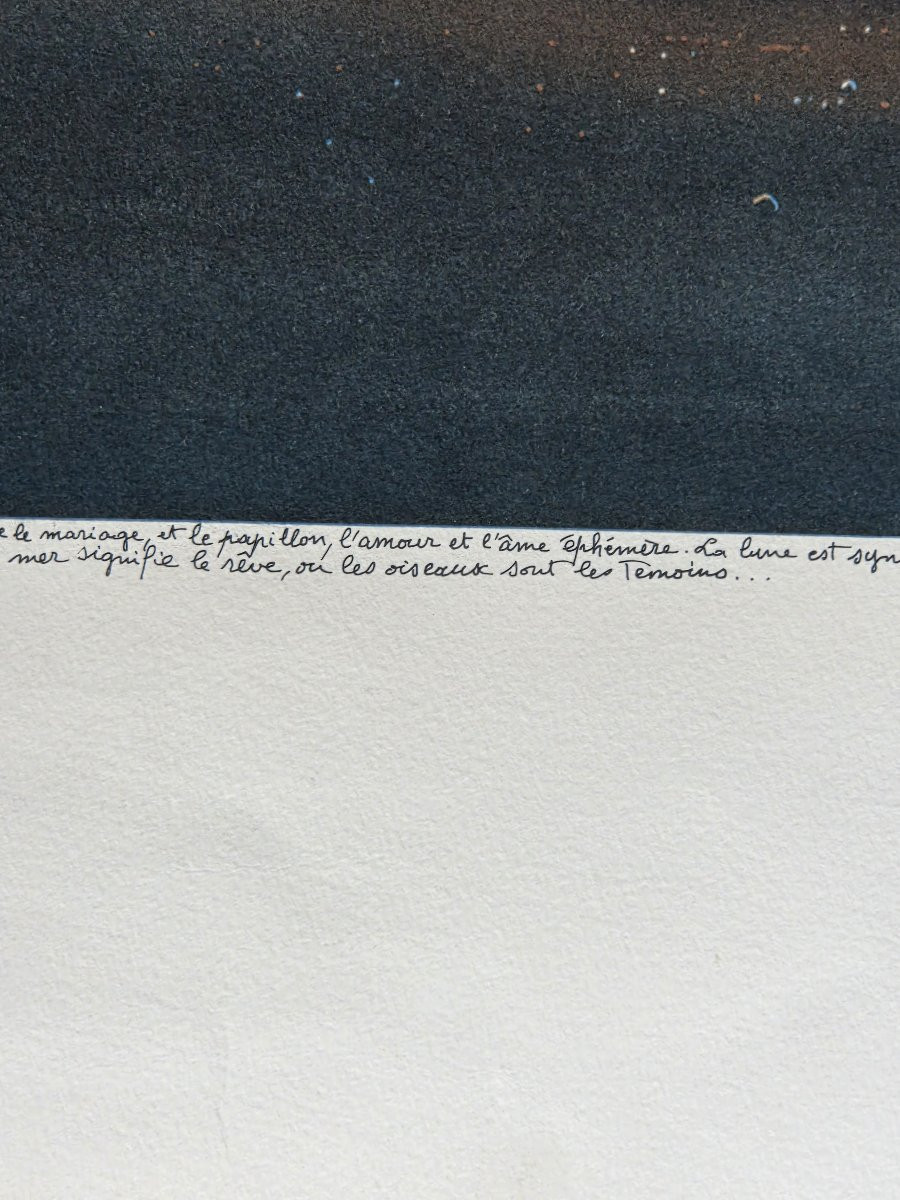 e le mariage, et le papillon, l'amour et l'âme éphémère. La lune est syn
mer signifie le rêve, où les oiseaux sont les Témoins...